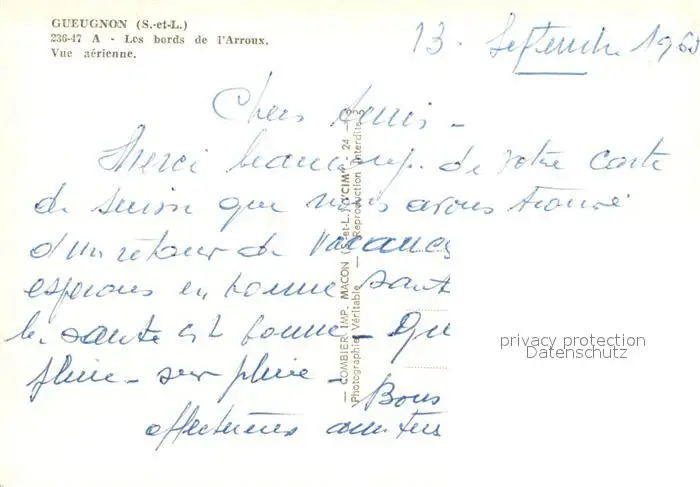 GUEUGNON (S.-et-L.)
236-47 A - Les bords de l'Arroux.
Vue aérienne.
13. Septembre 196
Chers Amis -
Merci beaucoup. de votre carte
de suisse que nous avons trouvé
d'un retour de Vacances
esperons en bonne santé
la sante est bonne -
pluie - sur pluie -
Bons
affectueuses amitiés
— COMBIER IMP. MACON (S.-et-L.) "CIM" -
Photographie Véritable - Reproduction Interdite
privacy protection
Datenschutz